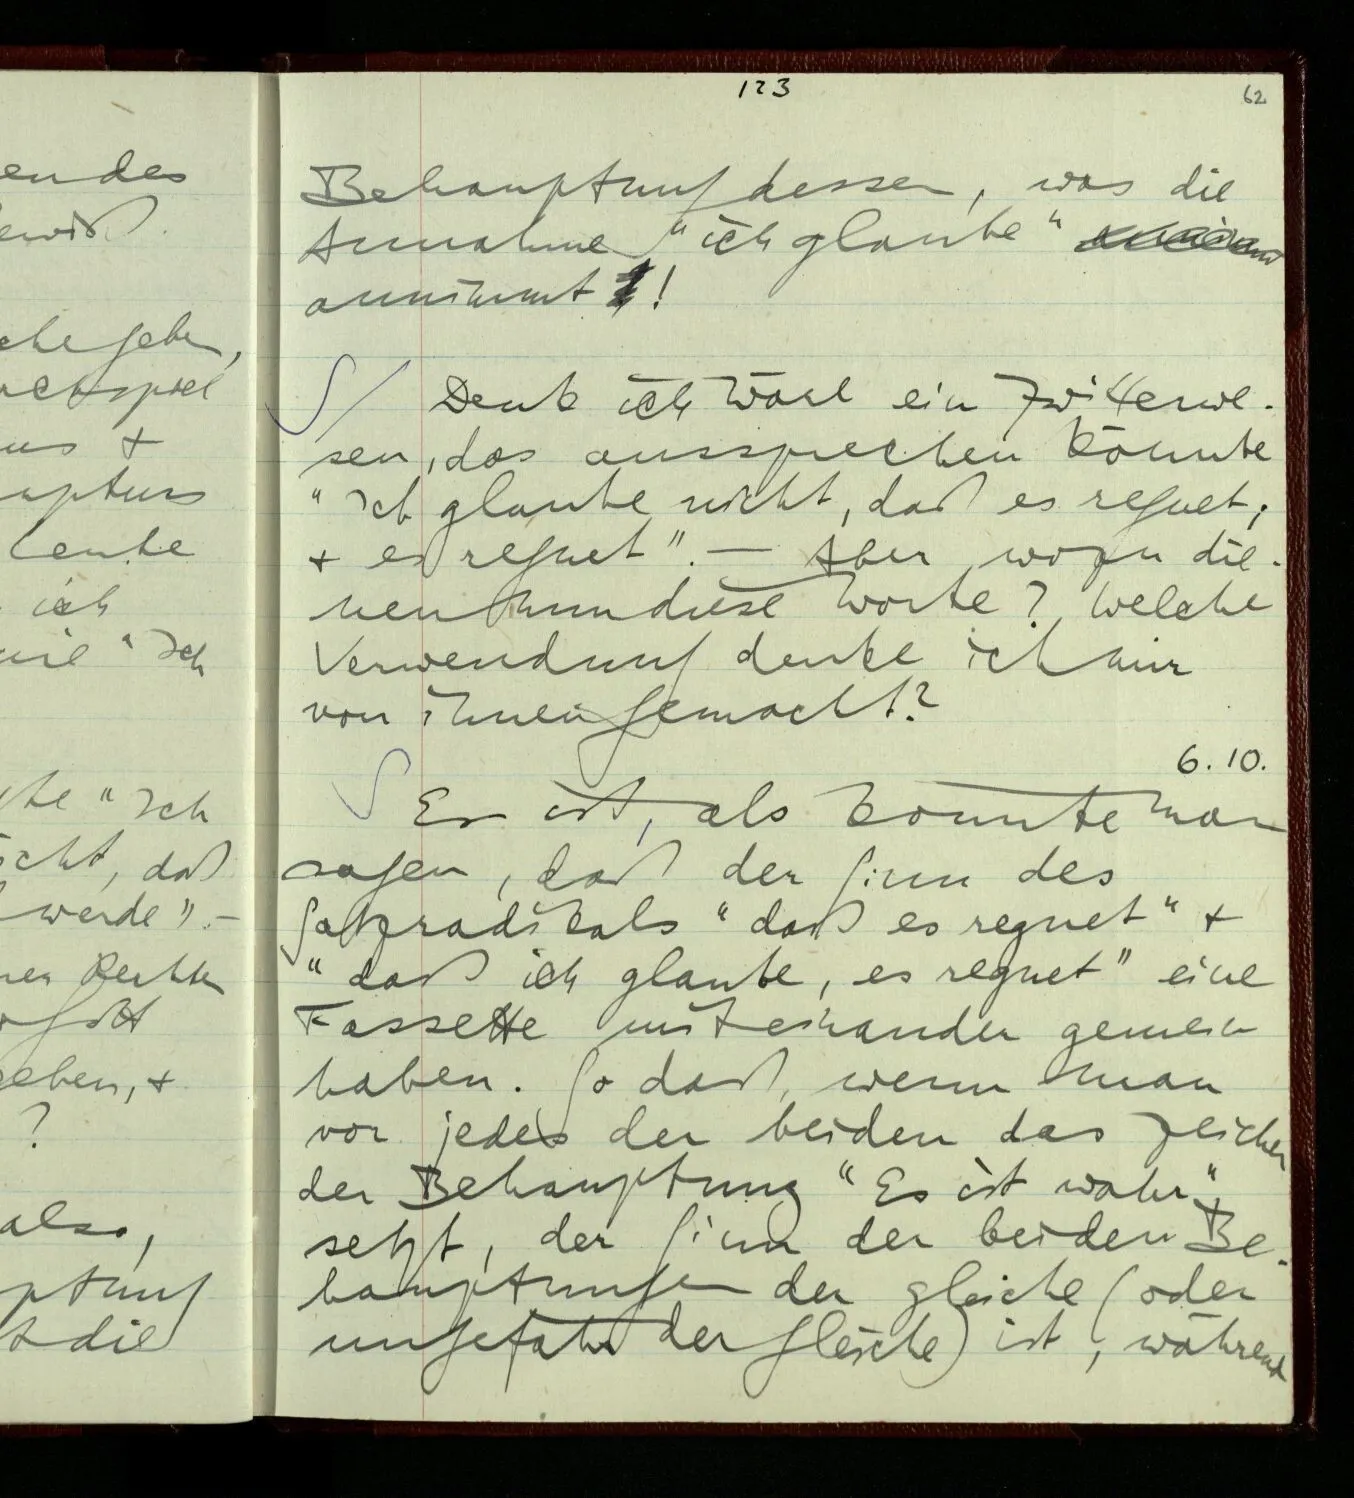 endes
ewiß.
che geben,
achspiel
us +
auptung
Leute
ich
wie "Ich
te "Ich
icht, daß
werde". –
geben, +
?
also,
ptung
die
123
62
Behauptung dessen, was die
Annahme "ich glaube"
annimmt !
S / Denk ich wäre ein Zwitterwe-
sen, das aussprechen könnte
"Ich glaube nicht, daß es regnet;
+ es regnet". – Aber wozu die-
nen nun diese Worte? Welche
Verwendung denke ich mir
von ihnen gemacht?
6.10.
S Es ist, als könnte man
sagen, daß der Sinn des
Satzradikals "daß es regnet" +
"daß ich glaube, es regnet" eine
Fassette miteinander gemein
haben. So daß, wenn man
vor jedes der beiden das Zeichen
der Behauptung "Es ist wahr"
setzt, der Sinn der beiden Be-
hauptungen der gleiche (oder
ungefähr der gleiche) ist, während